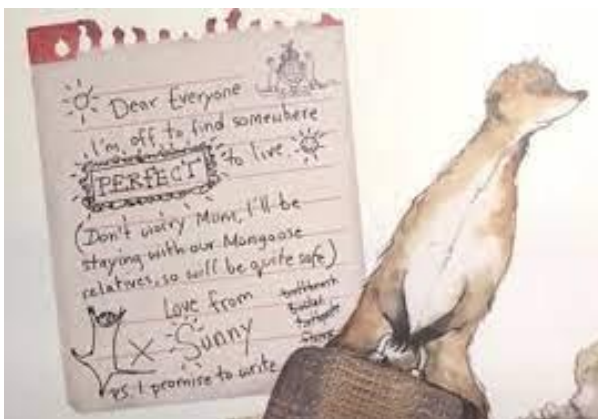 Dear Everyone
I'm off to find somewhere
PERFECT to live.
(Don't worry Mum, I'll be
staying with our Mongoose
relatives, so will be quite safe)
Love from
x Sunny
PS. I promise to write
toothbrush